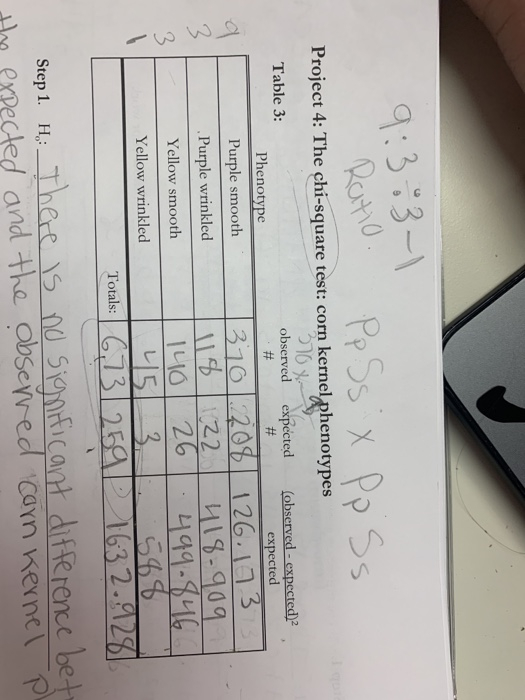 9:3:3-1
Ratio.
PpSs x PpSs
Project 4: The chi-square test: corn kernel phenotypes
370 x
Table 3:
Phenotype observed # expected # (observed - expected)² expected
9 Purple smooth 370 208 126.173
3 Purple wrinkled 118 22 418.909
3 Yellow smooth 140 26 499.846
1 Yellow wrinkled 45 3 588
Totals: 673 259 1632.928
Step 1. H₀: There is no significant difference bet
the expected and the observed corn kernel p